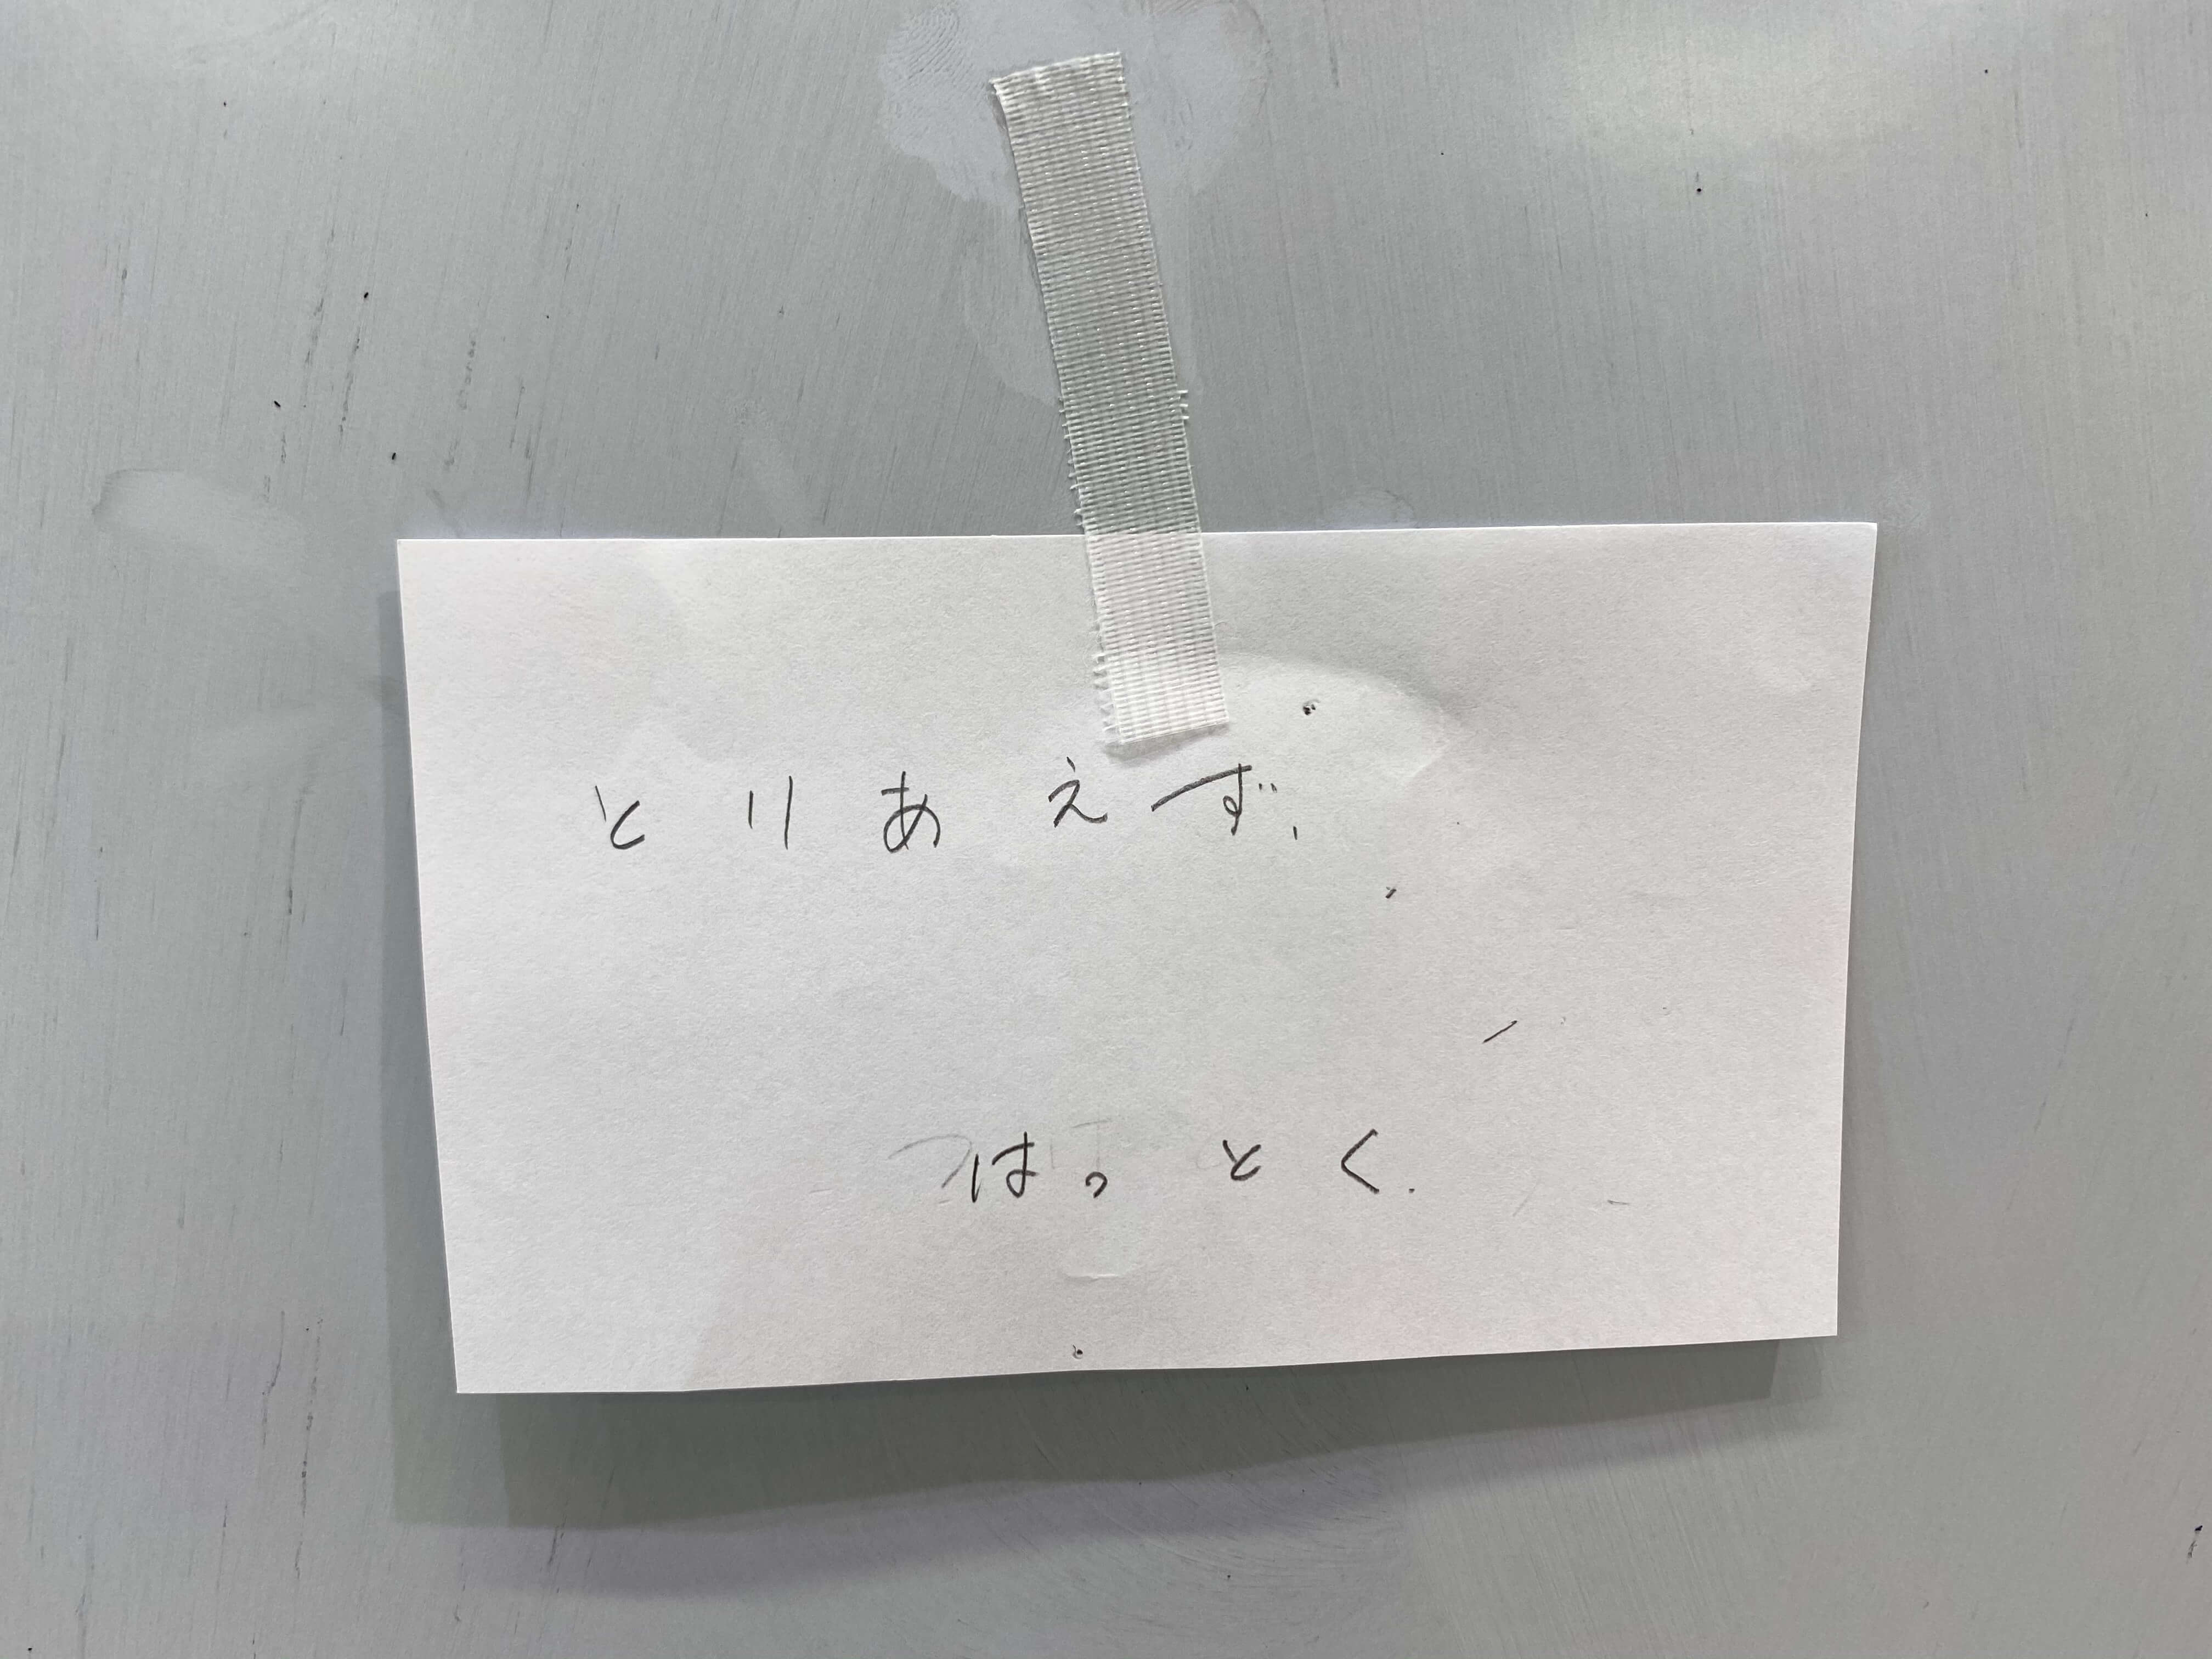 とりあえず、
はっとく.